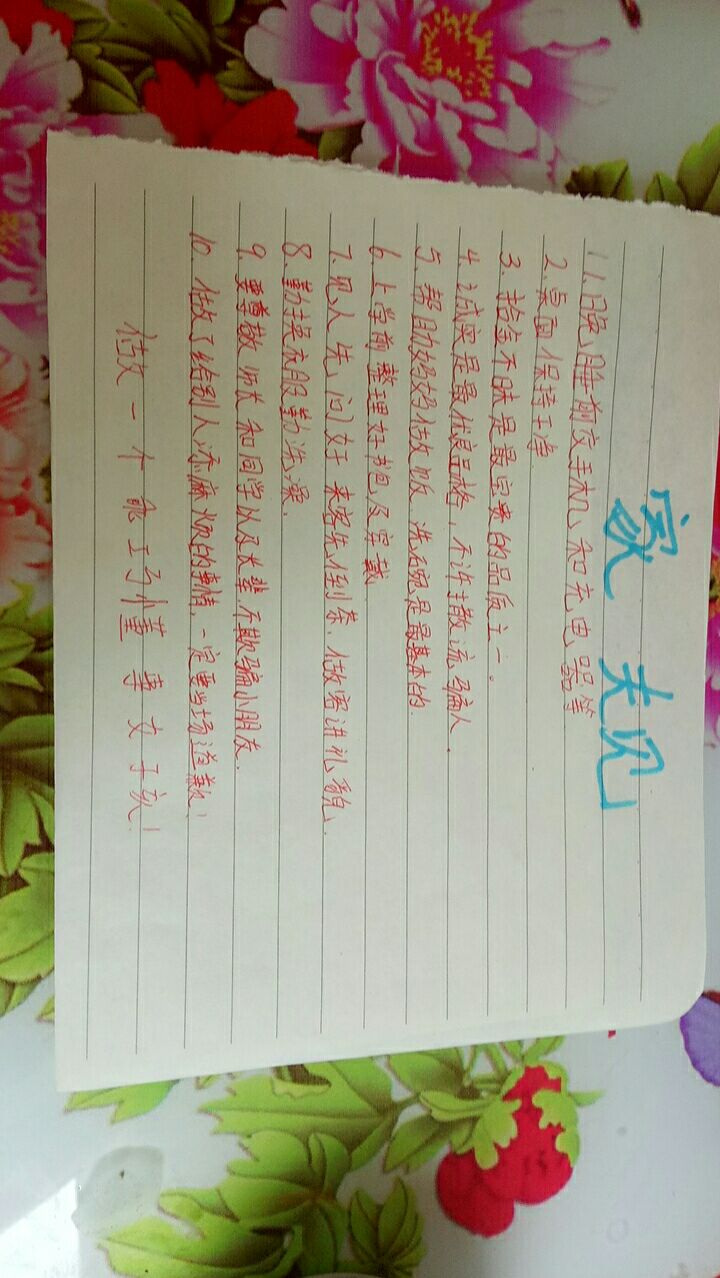 家 规
1.晚睡前交手机和充电器等
2.桌面保持干净
3.拾金不昧是最宝贵的品质之一。
4.诚实是最优良品格，不许撒谎骗人.
5.帮助妈妈做饭洗碗是最基本的.
6.上学前整理好书包及穿戴
7.见人先问好来客先倒茶、做客讲礼貌.
8.勤换衣服勤洗澡.
9.要尊敬师长和同学以及长辈.不欺骗小朋友.
10.做了给别人添麻烦的事情,一定要当场道歉!
做一个乖巧懂事女子孩!